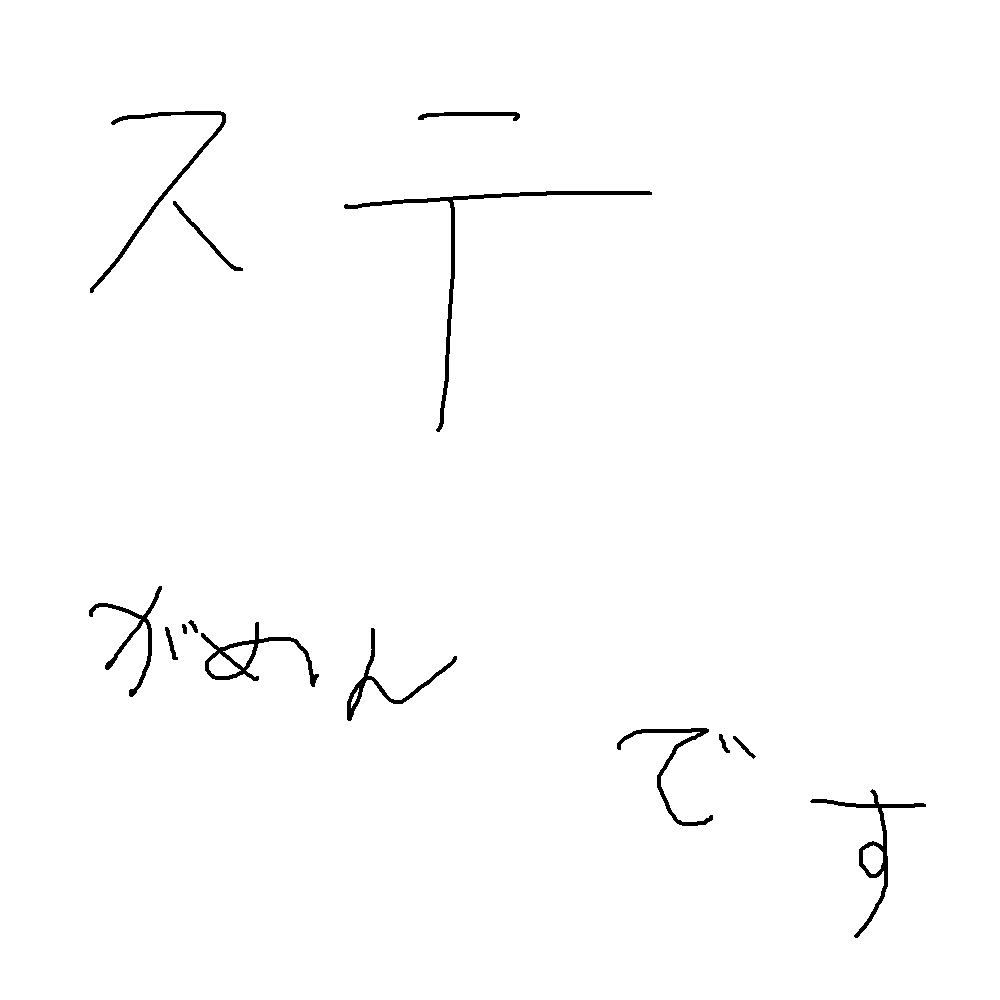 ステ
がめん
です